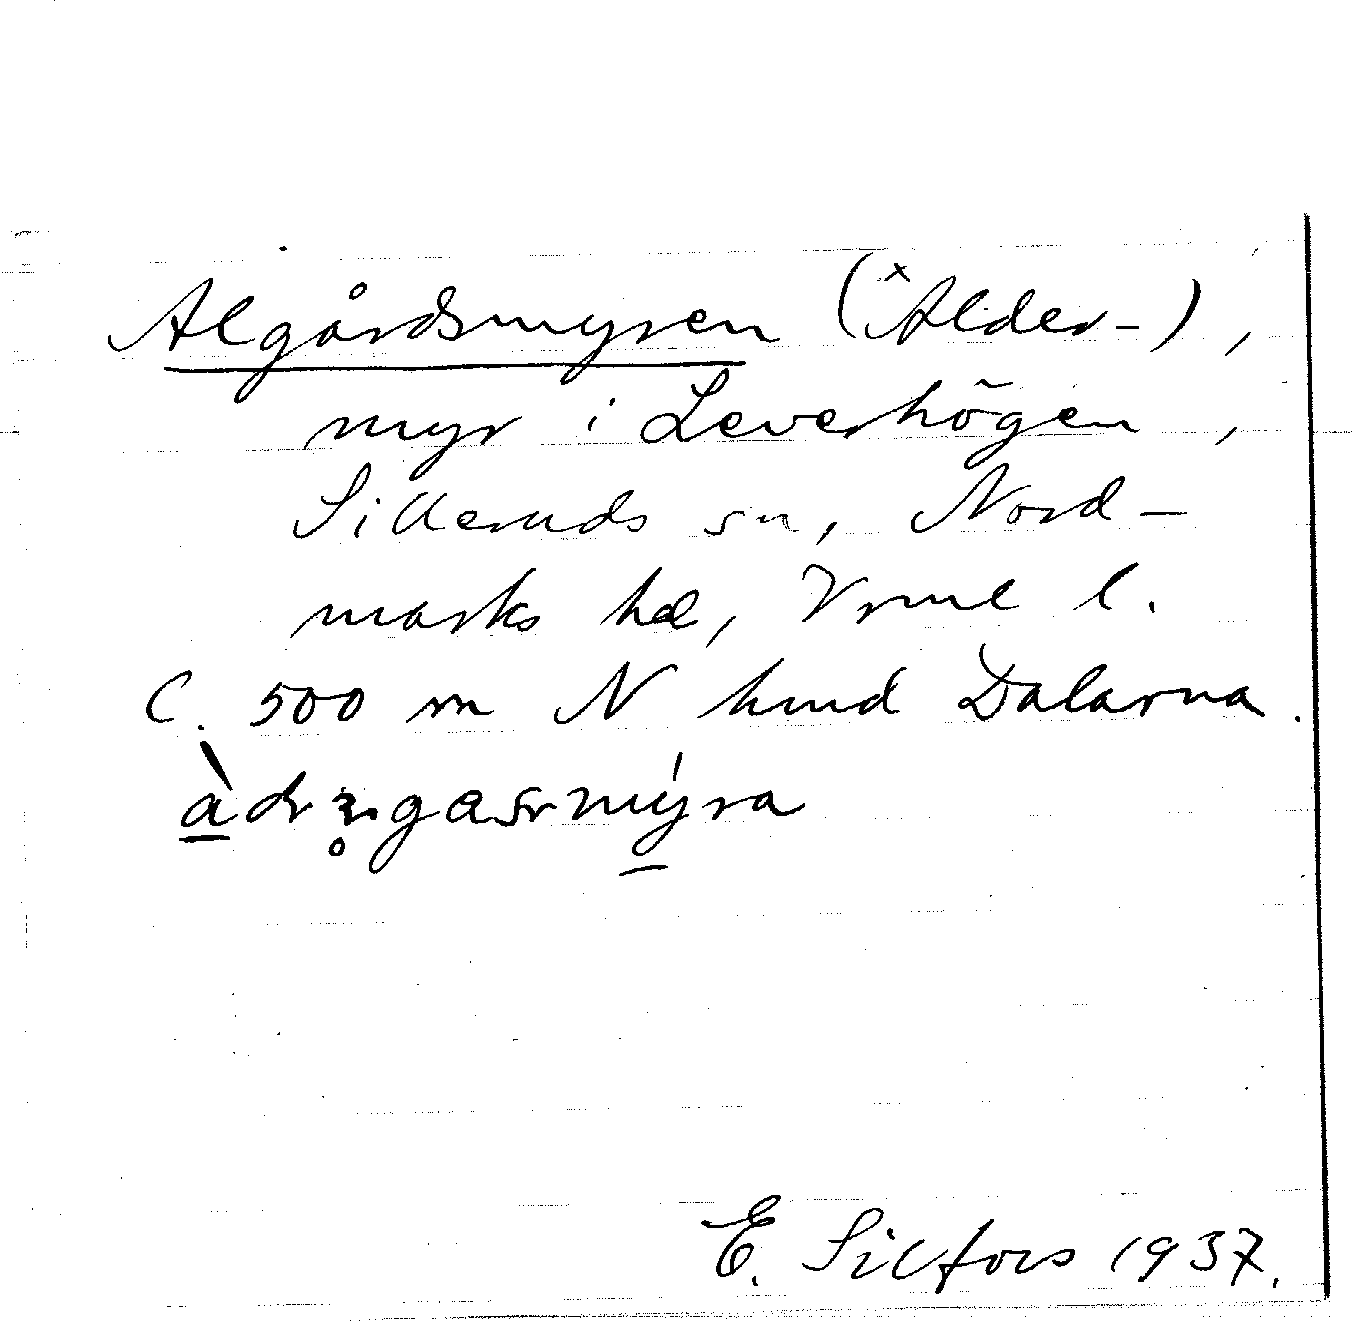 Algårdsmyren (ˣAlder-),
myr i Leverhögen,
Silleruds sn, Nord-
marks hd, Vrml l.
C. 500 m N hmd Dalarna.
E. Silfors 1937.